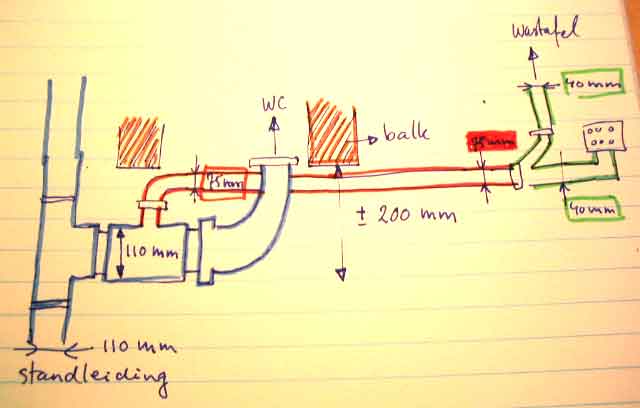 Wastafel
40 mm
WC
balk
75 mm
75 mm
± 200 mm
40 mm
110 mm
110 mm
standleiding